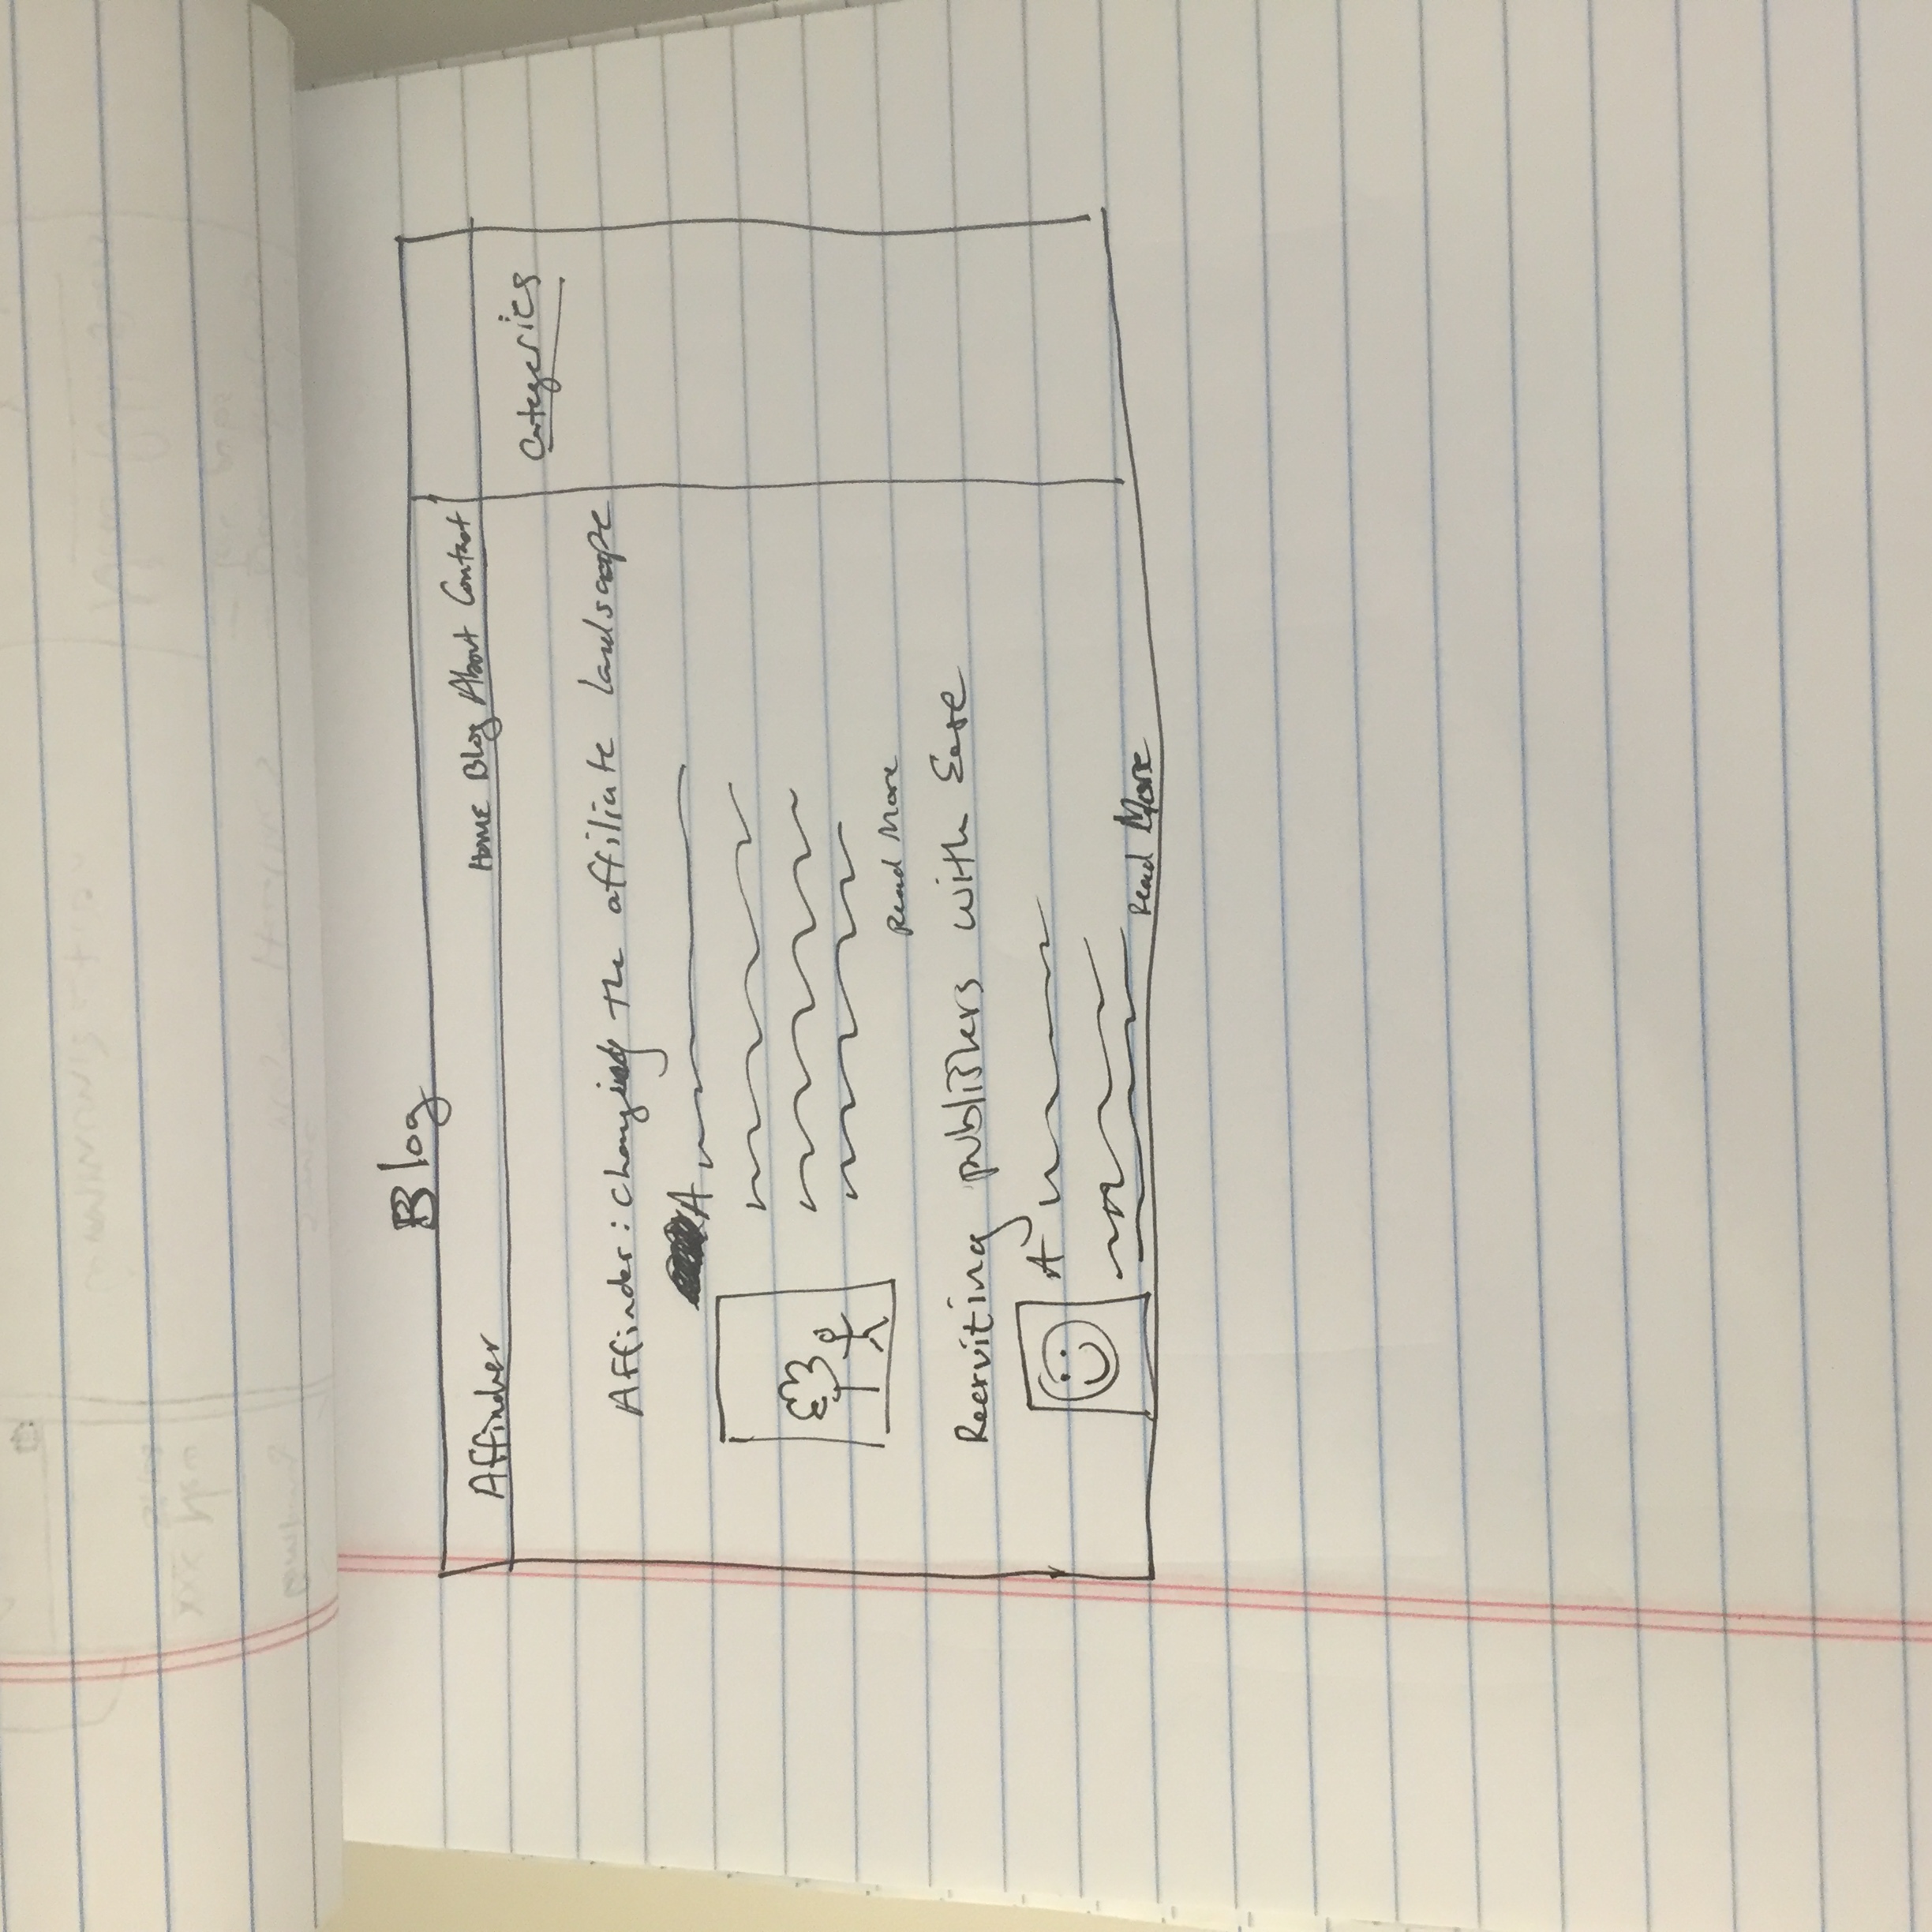 Blog
Affinder Home Blog About Contact
Categories
Affinder: Changing the affiliate landscape
A
Read More
Recruiting publishers with Ease
A
Read More